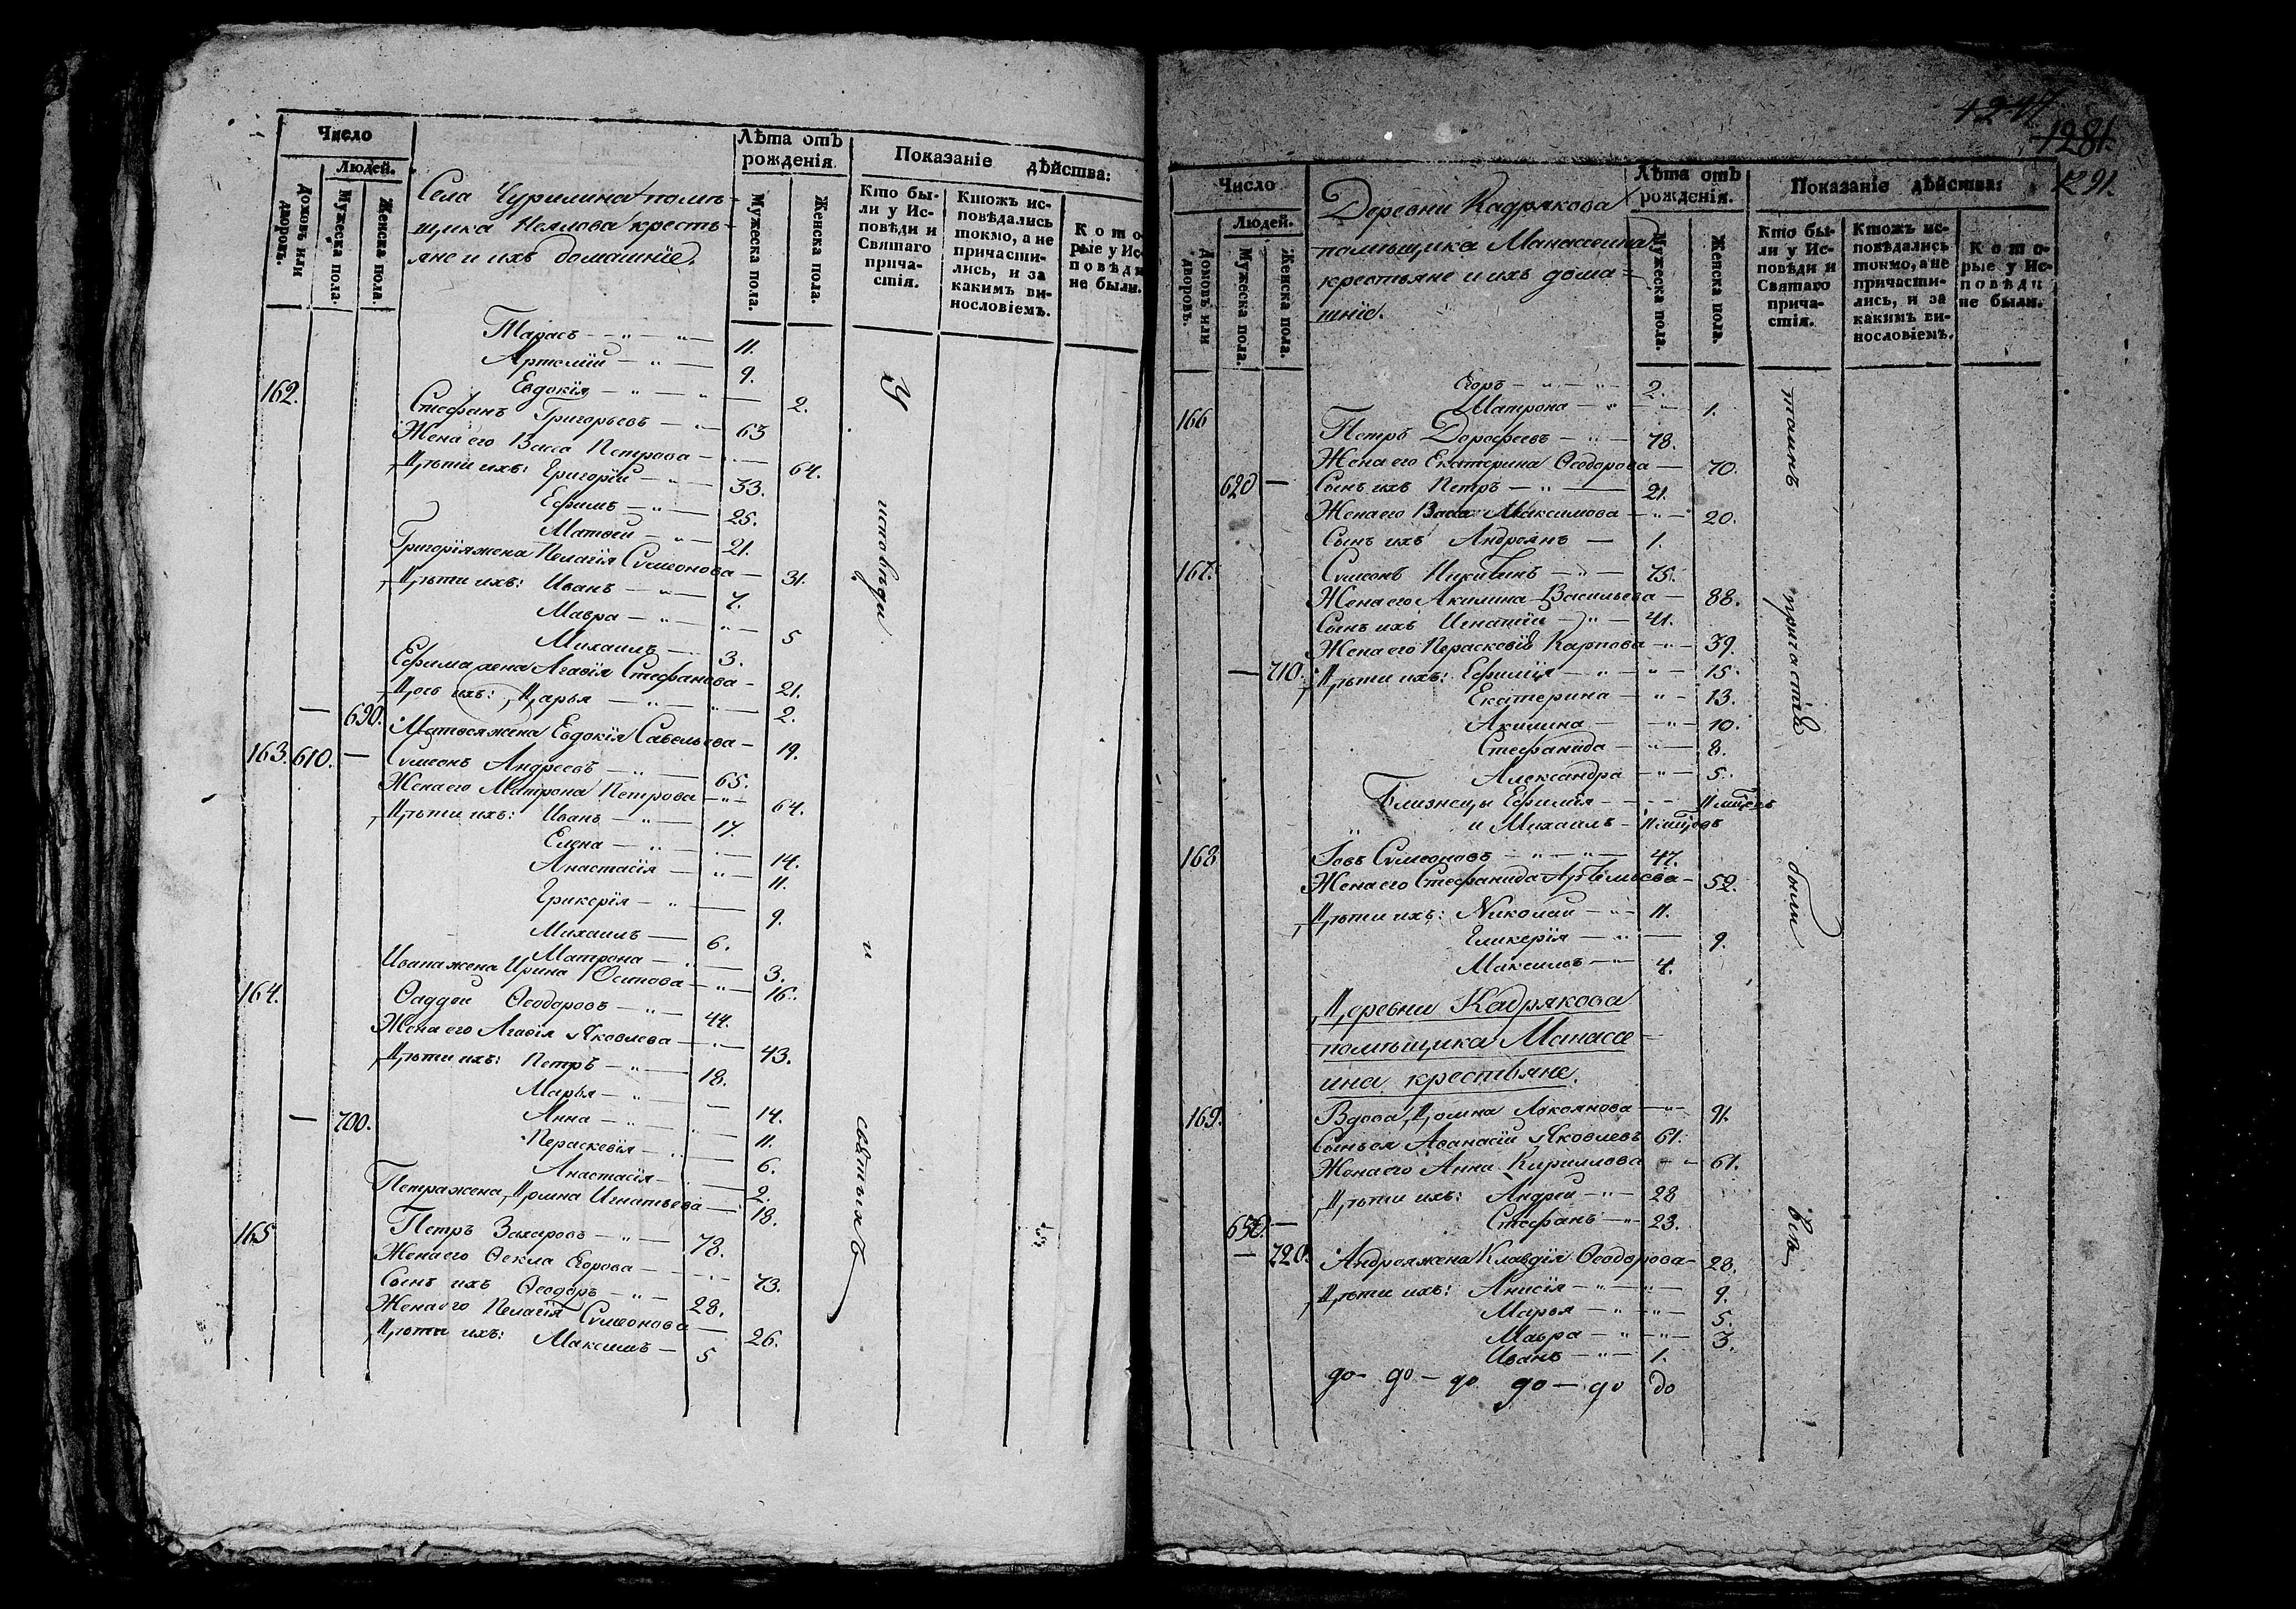 Число
Людей.
Домовъ или дворовъ.
Мужеска пола.
Женска пола.
Села Чурилина помѣ-
щика Неѧлова кресть-
яне и ихъ домашніе.
Лѣта отъ рожденія.
Мужеска пола.
Женска пола.
Показаніе дѣйства:
Кто бы-
ли у Ис-
повѣди и
Святаго
прича-
стія.
Ктожъ ис-
повѣдались
токмо, а не
причасти-
лись, и за
какимъ ви-
нословіемъ.
Кото-
рые у Ис-
повѣди
не были.
Тарасъ — 11.
Артемій — 9.
Евдокія — 2.
162. Стефанъ Григорьевъ — 63
Жена его Васса Петрова — 64.
Дѣти ихъ: Григорій — 33.
Ефимъ — 25.
Матѳей — 21.
Григорія жена Пелагія Сѵмеонова — 31.
Дѣти ихъ: Иванъ — 7.
Мавра — 5
Михаилъ — 3.
Ефима жена Агафія Стефанова — 21.
Дочь ихъ: Дарья — 2.
— 690. Матѳея жена Евдокія Савельева — 19.
163. 610. — Сѵмеонъ Андреевъ — 65.
Жена его Матрона Петрова — 64.
Дѣти ихъ: Иванъ — 17.
Елена — 14.
Анастасія — 11.
Гликерія — 9.
Михаилъ — 6.
Матрона — 3.
Ивана жена Ирина Осипова — 16.
164. Ѳаддей Ѳеодоровъ — 44.
Жена его Агафія Яковлева — 43.
Дѣти ихъ: Петръ — 18.
Марья — 14.
— 700. Анна — 11.
Пераскевія — 6.
Анастасія — 2.
Петра жена Домна Игнатьева — 18.
165 Петръ Захаровъ — 78.
Жена его Ѳекла Егорова — 73.
Сынъ ихъ Ѳеодоръ — 28.
Жена его Пелагія Сѵмеонова — 26.
Дѣти ихъ: Максимъ — 5
У исповѣди и святыхъ
4247
1281.
1291.
Число
Людей.
Домовъ или дворовъ.
Мужеска пола.
Женска пола.
Деревни Кадрякова
помѣщика Манассеина
крестьяне и ихъ дома=
шніе.
Лѣта отъ рожденія.
Мужеска пола.
Женска пола.
Показаніе дѣйства:
Кто бы-
ли у Ис-
повѣди и
Святаго
прича-
стія.
Ктожъ ис-
повѣдались
токмо, а не
причасти-
лись, и за
какимъ ви-
нословіемъ.
Кото-
рые у Ис-
повѣди
не были.
Егоръ — 2.
Матрона — 1.
166 Петръ Дорофеевъ — 78.
Жена его Екатерина Ѳеодорова — 70.
620 — Сынъ ихъ Петръ — 21.
Жена его Васса Максимова — 20.
Сынъ ихъ Андреянъ — 1.
167. Сѵмеонъ Никитинъ — 75.
Жена его Акилина Васильева — 88.
Сынъ ихъ Игнатій — 41.
Жена его Пераскевія Карпова — 39.
— 710. Дѣти ихъ: Ефимія — 15.
Екатерина — 13.
Акилина — 10.
Стефанида — 8.
Александра — 5.
Близнецы Ефимія —
и Михаилъ —
168 Іовъ Сѵмеоновъ — 47.
Жена его Стефанида Артемьева — 52.
Дѣти ихъ: Николай — 11.
Гликерія — 9.
Максимъ — 4.
Деревни Кадрякова
помѣщика Манассе
ина крестьяне.
169. Вдова Домна Лукоянова — 91.
Сынъ ея Аѳанасій Яковлевъ 61.
Жена его Анна Кириллова — 61.
Дѣти ихъ: Андрей — 28
630. — Стефанъ — 23.
— 720. Андрея жена Клавдія Ѳеодорова — 28.
Дѣти ихъ: Анисія — 9.
Марья — 5.
Мавра — 3.
Иванъ — 1.
до — до — до до — до до
таинъ причастіѣ были всѣ